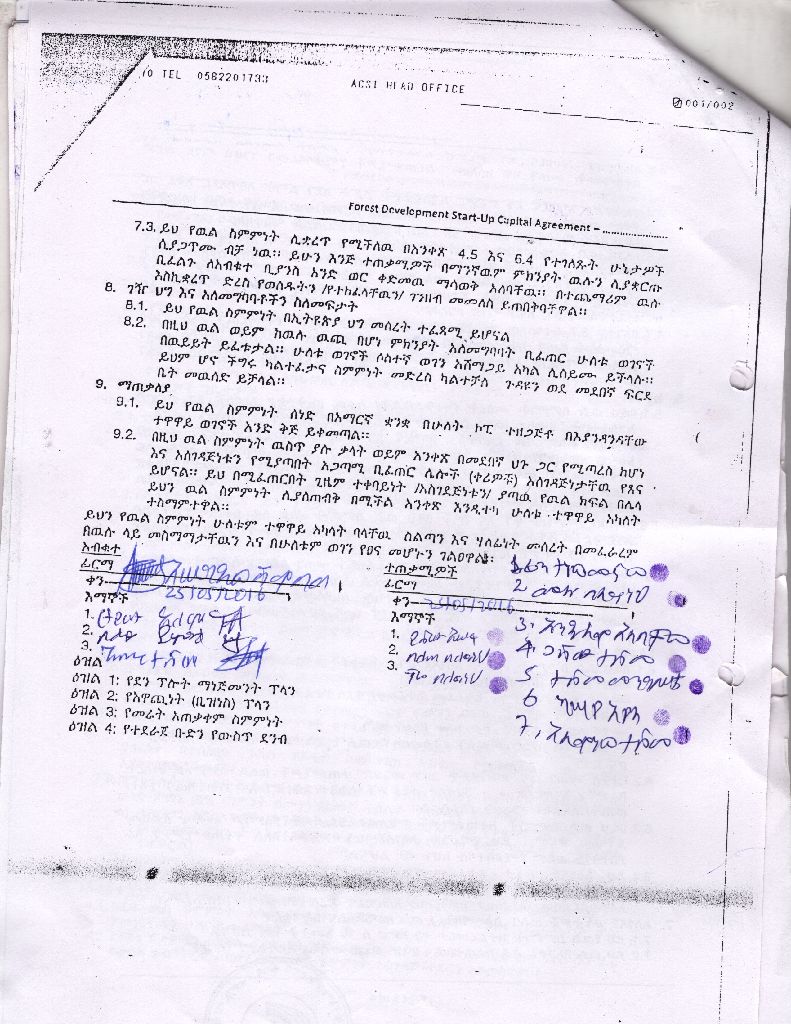 TEL 0582201733
ACSI HEAD OFFICE
001/002
Forest Development Start-Up Capital Agreement –
7.3. ይህ የዉል ስምምነት ሊቋረጥ የሚችለዉ በአንቀጽ 4.5 እና 6.4 የተገለጹት ሁኔታዎች
ሲያጋጥሙ ብቻ ነዉ፡፡ ይሁን እንጅ ተጠቃሚዎች በማንኛዉም ምክንያት ዉሉን ሊያቋርጡ
ቢፈልጉ ለአብቁተ ቢያንስ አንድ ወር ቀድመዉ ማሳወቅ አለባቸዉ፡፡ በተጨማሪም ዉሉ
እስኪቋረጥ ድረስ የወሰዱትን /የተከፈላቸዉን/ ገንዘብ መመለስ ይጠበቅባቸዋል፡፡
8. ገዥ ህግ እና አለመግባባቶችን ስለመፍታት
8.1. ይህ የዉል ስምምነት በኢትዮጵያ ህግ መሰረት ተፈጻሚ ይሆናል
8.2. በዚህ ዉል ወይም ከዉሉ ዉጪ በሆነ ምክንያት አለመግባባት ቢፈጠር ሁለቱ ወገኖች
በዉይይት ይፈቱታል፡፡ ሁለቱ ወገኖች ሶስተኛ ወገን አሸማጋይ አካል ሊሰይሙ ይችላሉ፡፡
ይህም ሆኖ ችግሩ ካልተፈታና ስምምነት መድረስ ካልተቻለ ጉዳዩን ወደ መደበኛ ፍርድ
ቤት መዉሰድ ይቻላል፡፡
9. ማጠቃለያ
9.1. ይህ የዉል ስምምነት ሰነድ በአማርኛ ቋንቋ በሁለት ኮፒ ተዘጋጅቶ በእያንዳንዳቸው
ተዋዋይ ወገኖች አንድ ቅጅ ይቀመጣል፡፡
9.2. በዚህ ዉል ስምምነት ዉስጥ ያሉ ቃላት ወይም አንቀጽ በመደበኛ ህጉ ጋር የሚጣረስ ከሆነ
እና አስገዳጅነቱን የሚያጣበት አጋጣሚ ቢፈጠር ሌሎች (ቀሪዎቹ) አስገዳጅነታቸዉ የጸና
ይሆናል፡፡ ይህ በሚፈጠርበት ጊዜም ተቀባይነት /አስገደጅነቱን/ ያጣዉ የዉል ክፍል በሌላ
ይህን ዉል ስምምነት ሊያስጠብቅ በሚችል አንቀጽ እንዲተካ ሁለቱ ተዋዋይ አካለት
ተስማምተዋል፡፡
ይህን የዉል ስምምነት ሁለቱም ተዋዋይ አካላት ባላቸዉ ስልጣን እና ሃላፊነት መሰረት በመፈራረም
በዉሉ ላይ መስማማታቸዉን እና በሁለቱም ወገን የፀና መሆኑን ገልፀዋል፡፡
አብቁተ
ፊርማ
ቀን 25/05/2016
እማኞች
1.
2.
3.
ተጠቃሚዎች
ፊርማ
ቀን 25/05/2016
እማኞች
1.
2.
3.
1.
2
3.
4.
5
6
7.
ዕዝል
ዕዝል 1: የደን ፕሎት ማነጅመንት ፕላን
ዕዝል 2: የአዋጪነት (ቢዝነስ) ፕላን
ዕዝል 3: የመሬት አጠቃቀም ስምምነት
ዕዝል 4: የተደራጀ ቡድን የውስጥ ደንብ